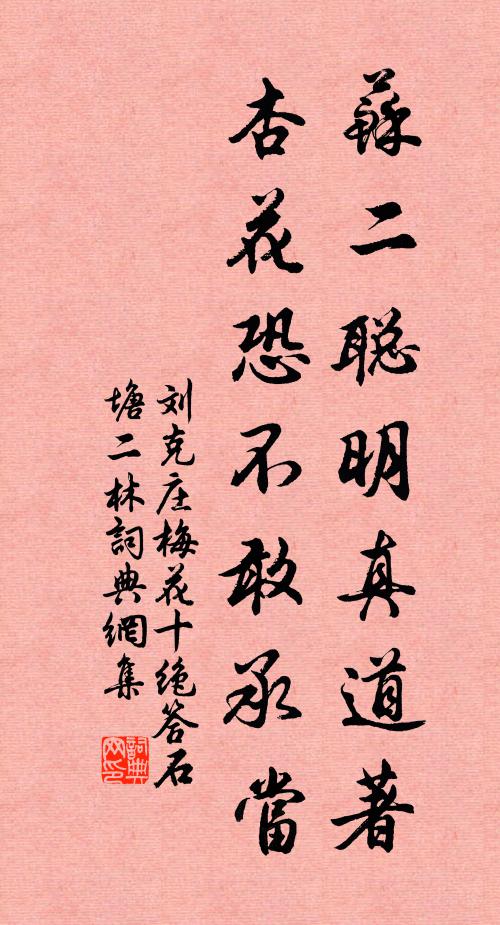 蘇二聰明真道著
杏花恐不敢承當
刘克庄梅花十绝答石
塘二林詞典網集
詞典网印